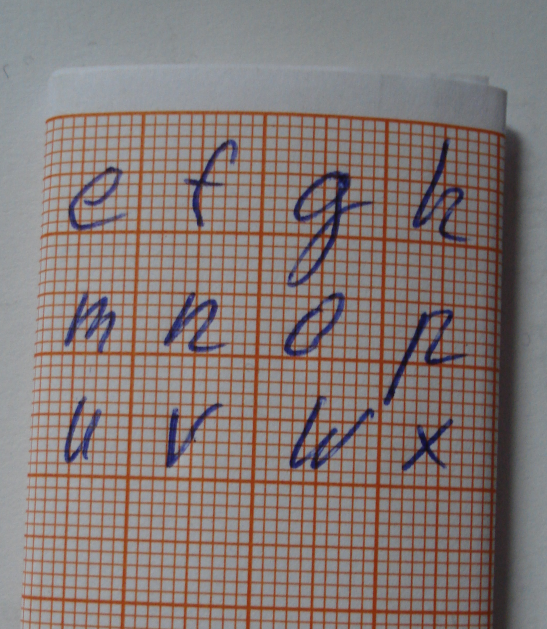 e f g h
m n o p
u v w x